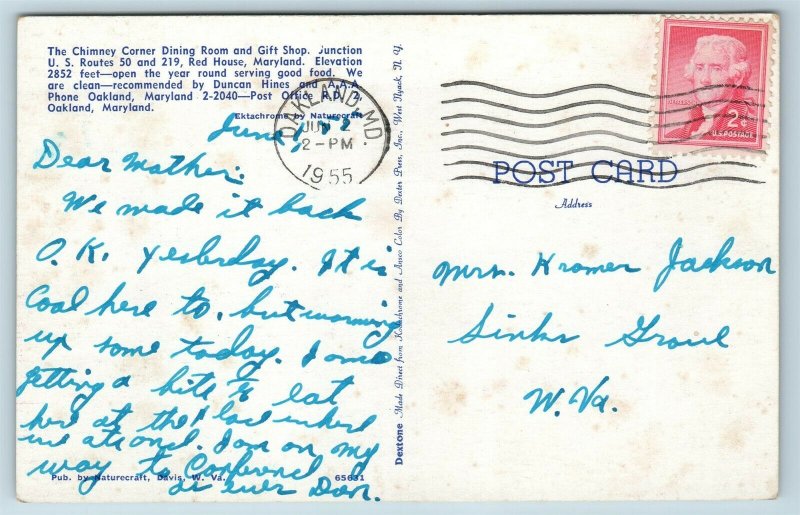 The Chimney Corner Dining Room and Gift Shop. Junction
U. S. Routes 50 and 219, Red House, Maryland. Elevation
2852 feet—open the year round serving good food. We
are clean—recommended by Duncan Hines and A.A.A.
Phone Oakland, Maryland 2-2040—Post Office R.D. 2,
Oakland, Maryland.
Ektachrome by Naturecraft
June
Dear Mother:
We made it back
O.K. yesterday. It is
Cool here to, but warming
up some today. I am
getting a bite to eat
here at the place where
we ate once. I am on my
way to
as ever Don.
Pub. by Naturecraft, Davis, W. Va.
65631
Dextone Made Direct from Kodachrome and Ansco Color By Dexter Press, Inc., West Nyack, N. Y.
OAKLAND, MD.
JUN 2
2-PM
1955
JEFFERSON
2¢
U.S. POSTAGE
POST CARD
Address
Mrs. Kromer Jackson
Sinks Grove
W. Va.